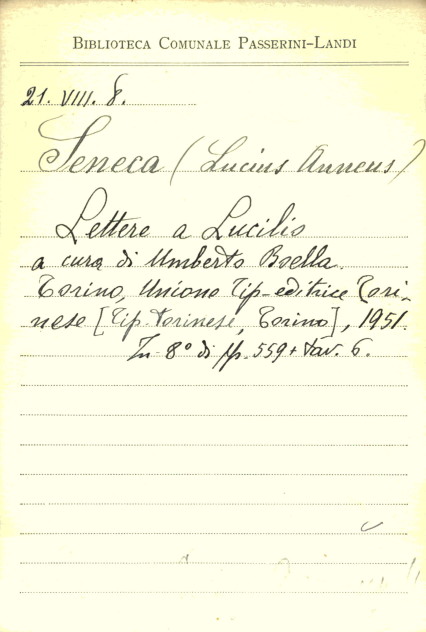 BIBLIOTECA COMUNALE PASSERINI-LANDI
21. VIII. 8.
Seneca (Lucius Anneus)
Lettere a Lucilio
a cura di Umberto Boella.
Torino, Unione Tip-editrice Tori-
nese [Tip. Torinese, Torino], 1951.
In 8° di pp. 559 + tav. 6.